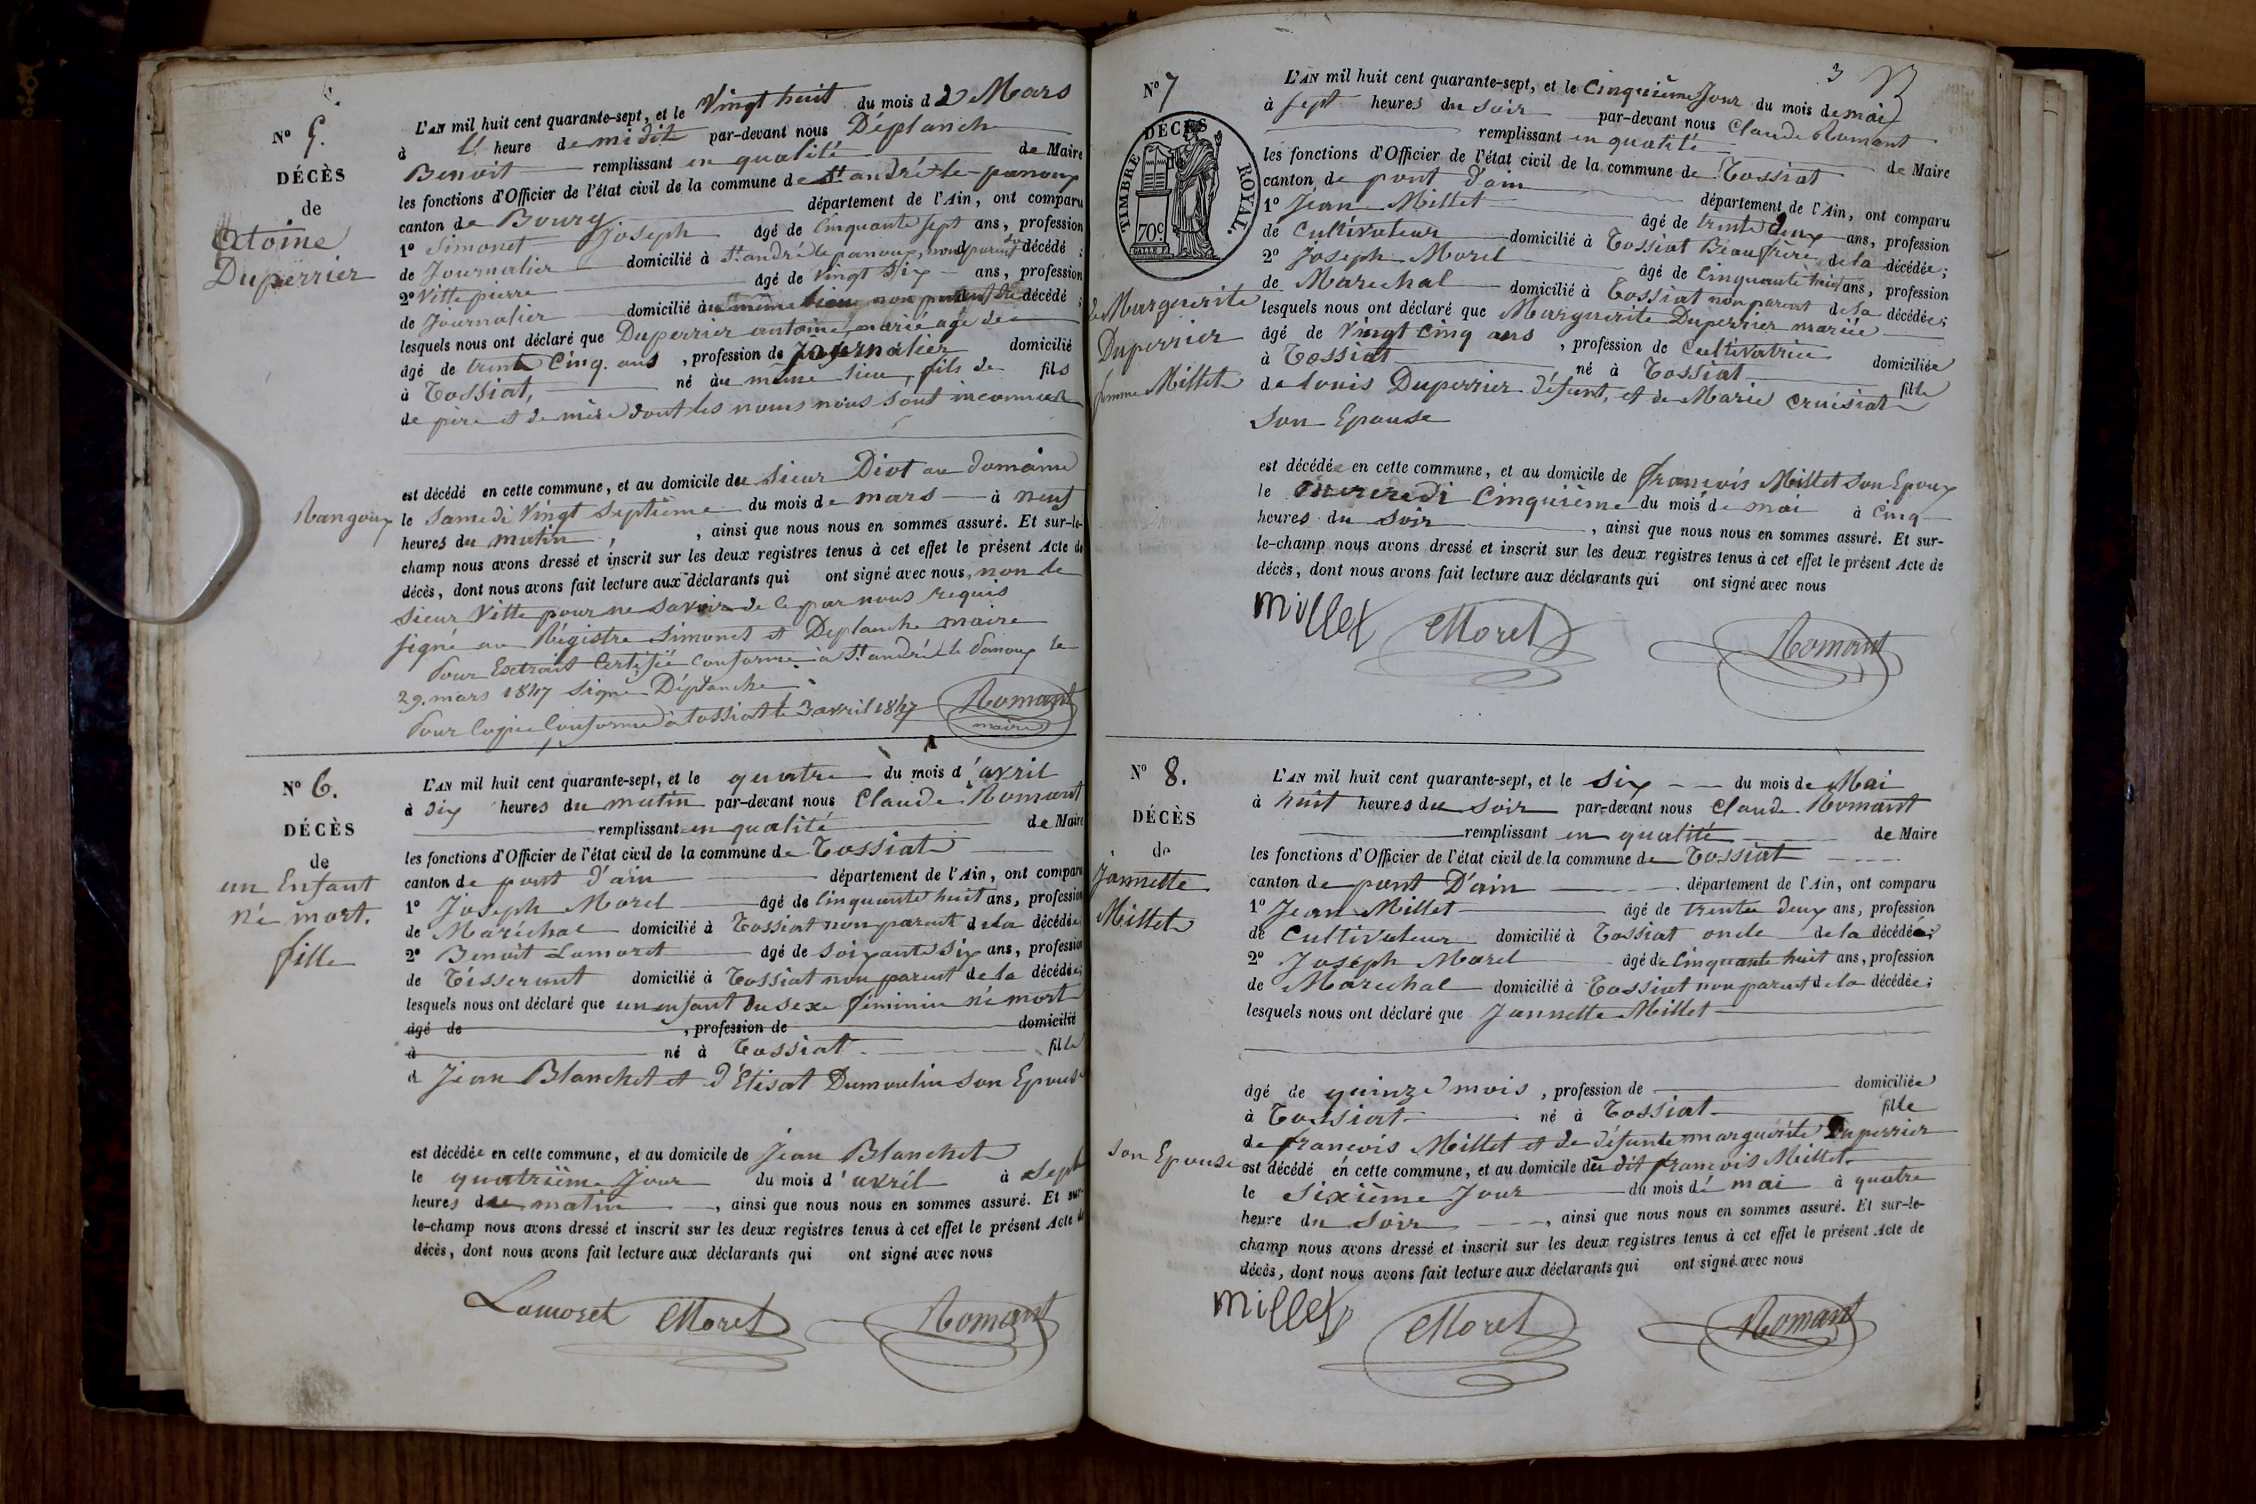 Nº 5.
DÉCÈS
de
Antoine
Duperrier
L'AN mil huit cent quarante-sept, et le Vingt huit du mois de Mars
à heure de midi par-devant nous Déplanche
Benoit remplissant en qualité de Maire
les fonctions d'Officier de l'état civil de la commune de St andré-le-panoux
canton de Bourg département de l'Ain, ont comparu
1º Simonet Joseph âgé de Cinquante sept ans, profession
de Journalier domicilié à St andré le panoux, non parent du décédé ;
2º Vitte pierre âgé de vingt six ans, profession
de Journalier domicilié au même lieu non parent du décédé ;
lesquels nous ont déclaré que Duperrier antoine, marié age de
âgé de trente Cinq. ans , profession de Journalier domicilié
à Tossiat, né au même lieu, fils de fils
de père et de mère dont les noms nous sont inconnus
est décédé en cette commune, et au domicile du sieur Diot au domaine
Rangoux
le Samedi Vingt Septième du mois de mars à neuf
heures du matin , ainsi que nous nous en sommes assuré. Et sur-le-
champ nous avons dressé et inscrit sur les deux registres tenus à cet effet le présent Acte de
décès, dont nous avons fait lecture aux déclarants qui ont signé avec nous, non le
sieur Vitte pour ne savoir de ce par nous requis
signé au Régistre Simonet et Deplanche maire
Pour Extrait Certifié Conforme à St andré le Panoux le
29. mars 1847 signé Déplanche
Pour Copie Conforme à Tossiat le 3 avril 1847 Romant
maire
Nº 6.
DÉCÈS
de
un Enfant
né mort.
fille
L'AN mil huit cent quarante-sept, et le quatre du mois d'avril
à six heures du matin par-devant nous Claude Romant
remplissant en qualité de Maire
les fonctions d'Officier de l'état civil de la commune de Tossiat
canton de pont d'ain département de l'Ain, ont comparu
1º Joseph Morel âgé de Cinquante huit ans, profession
de Maréchal domicilié à Tossiat non parent de la décédée;
2º Benoit Lamoret âgé de Soixante six ans, profession
de Tisserant domicilié à Tossiat non parent de la décédée;
lesquels nous ont déclaré que un enfant du sexe féminin né mort
âgé de , profession de domicilié
à né à Tossiat fille
d Jean Blanchet et d'Elisat Dumoulin son Epouse
est décédée en cette commune, et au domicile de Jean Blanchet
le quatrième Jour du mois d'avril à Sept
heures du matin , ainsi que nous nous en sommes assuré. Et sur-
le-champ nous avons dressé et inscrit sur les deux registres tenus à cet effet le présent Acte de
décès, dont nous avons fait lecture aux déclarants qui ont signé avec nous
Lamoret Morel Romant
3
Nº 7
DÉCÈS
TIMBRE ROYAL.
70c
de Marguerite
Duperrier
femme Millet
L'AN mil huit cent quarante-sept, et le Cinquième Jour du mois de mai
à sept heures du soir par-devant nous Claude Romant
remplissant en qualité de Maire
les fonctions d'Officier de l'état civil de la commune de Tossiat
canton de pont d'ain département de l'Ain, ont comparu
1º Jean Millet âgé de trente deux ans, profession
de Cultivateur domicilié à Tossiat Beau frère de la décédée;
2º Joseph Morel âgé de Cinquante huit ans, profession
de Marechal domicilié à Tossiat non parent de la décédée;
lesquels nous ont déclaré que Marguerite Duperrier mariée
âgé de Vingt Cinq ans , profession de Cultivatrice domiciliée
à Tossiat né à Tossiat fille
de Louis Duperrier défunt, et de Marie Cruisiat
Son Epouse
est décédée en cette commune, et au domicile de François Millet son Epoux
le mercredi Cinquième du mois de mai à Cinq
heures du Soir , ainsi que nous nous en sommes assuré. Et sur-
le-champ nous avons dressé et inscrit sur les deux registres tenus à cet effet le présent Acte de
décès, dont nous avons fait lecture aux déclarants qui ont signé avec nous
Millet Morel Romant
Nº 8.
DÉCÈS
de
Jannette
Millet
L'AN mil huit cent quarante-sept, et le six du mois de Mai
à huit heures du soir par-devant nous Claude Romant
remplissant en qualité de Maire
les fonctions d'Officier de l'état civil de la commune de Tossiat
canton de pont D'ain département de l'Ain, ont comparu
1º Jean Millet âgé de trente deux ans, profession
de Cultivateur domicilié à Tossiat oncle de la décédée;
2º Joseph Morel âgé de Cinquante huit ans, profession
de Marechal domicilié à Tossiat non parent de la décédée;
lesquels nous ont déclaré que Jannette Millet
âgé de quinze mois , profession de domiciliée
à Tossiat né à Tossiat fille
de françois Millet et de défunte marguérite Duperrier
Son Epouse
est décédé en cette commune, et au domicile du dit françois Millet
le Sixième Jour du mois de mai à quatre
heure du Soir , ainsi que nous nous en sommes assuré. Et sur-le-
champ nous avons dressé et inscrit sur les deux registres tenus à cet effet le présent Acte de
décès, dont nous avons fait lecture aux déclarants qui ont signé avec nous
Millet Morel Romant